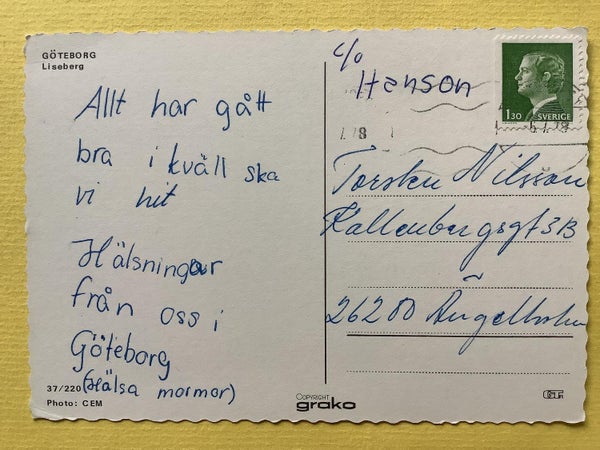 GÖTEBORG
Liseberg
Allt har gått
bra i kväll ska
vi hit
Hälsningar
från oss i
Göteborg
(Hälsa mormor)
37/220
Photo: CEM
COPYRIGHT
grako
c/o
Hanson
1.30 SVERIGE
Torsten Nilsson
Kallenbergsgt 3B
26200 Ängelholm